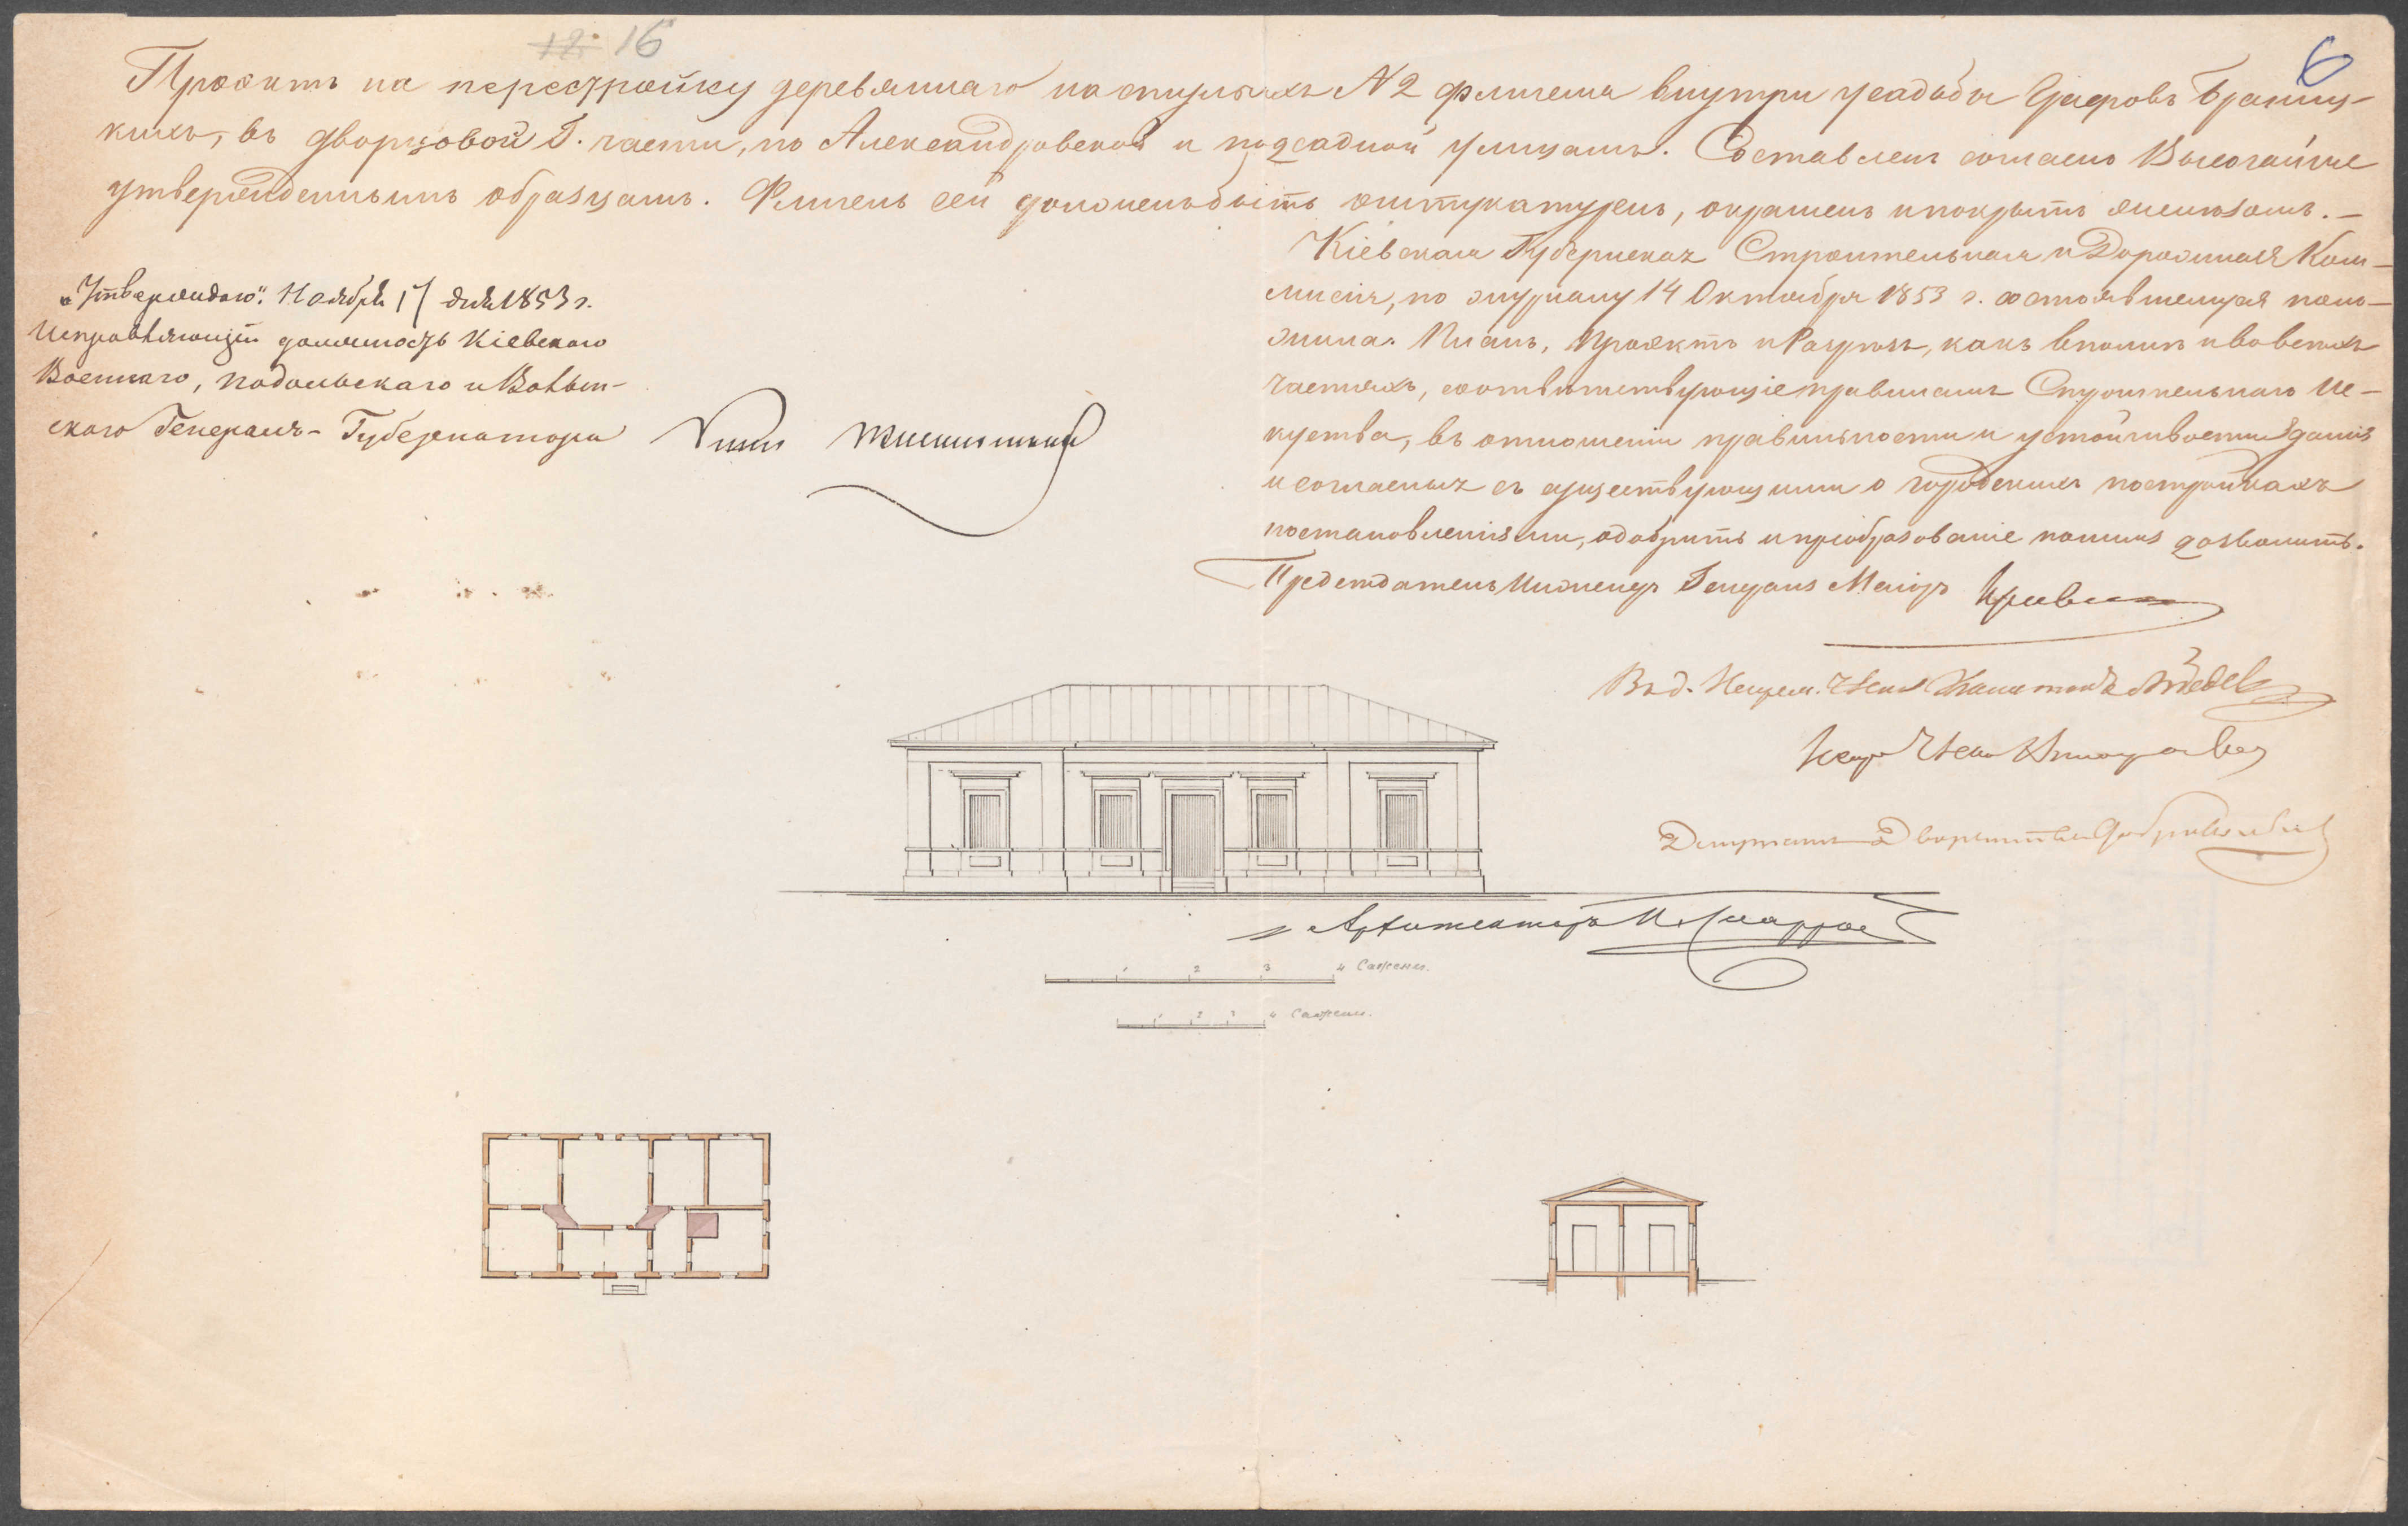 12. 16
6
Проэктъ на перестройку деревяннаго на стульяхъ N 2 флигеля внутри усадьбы Графовъ Браниц-
кихъ, въ дворцовой Г. части, по Александровской и подсадной улицамъ. Составленъ согласно Высочайше
утвержденнымъ образцамъ. Флигель сей долженъ быть оштукатуренъ, окрашенъ и покрытъ желѣзомъ. –
Кіевская Губернская Строительная и Дорожная Ком-
мисія, по журналу 14 Октября 1853 г. состоявшемуся поло-
жила. Планъ, Проэктъ и Разрѣзъ, какъ вполнѣ и во всѣхъ
частяхъ, соотвѣтствующіе правиламъ Строительнаго Ис-
куства, въ отношеніи правильности и устойчивости зданія
и согласныя съ существующими о городскихъ постройкахъ
постановленіями, одобрить и преобразованіе по нимъ дозволить.
Председатель Инженеръ Генералъ Маіоръ
„Утверждаю". Ноября 17 дня 1853 г.
Исправляющій должность Кіевскаго
Военнаго, Подольскаго и Волын-
скаго Генералъ-Губернатора
Членъ
Депутатъ Дворянства
Архитекторъ
1 2 3 4 Сажени.
1 2 3 4 Сажени.